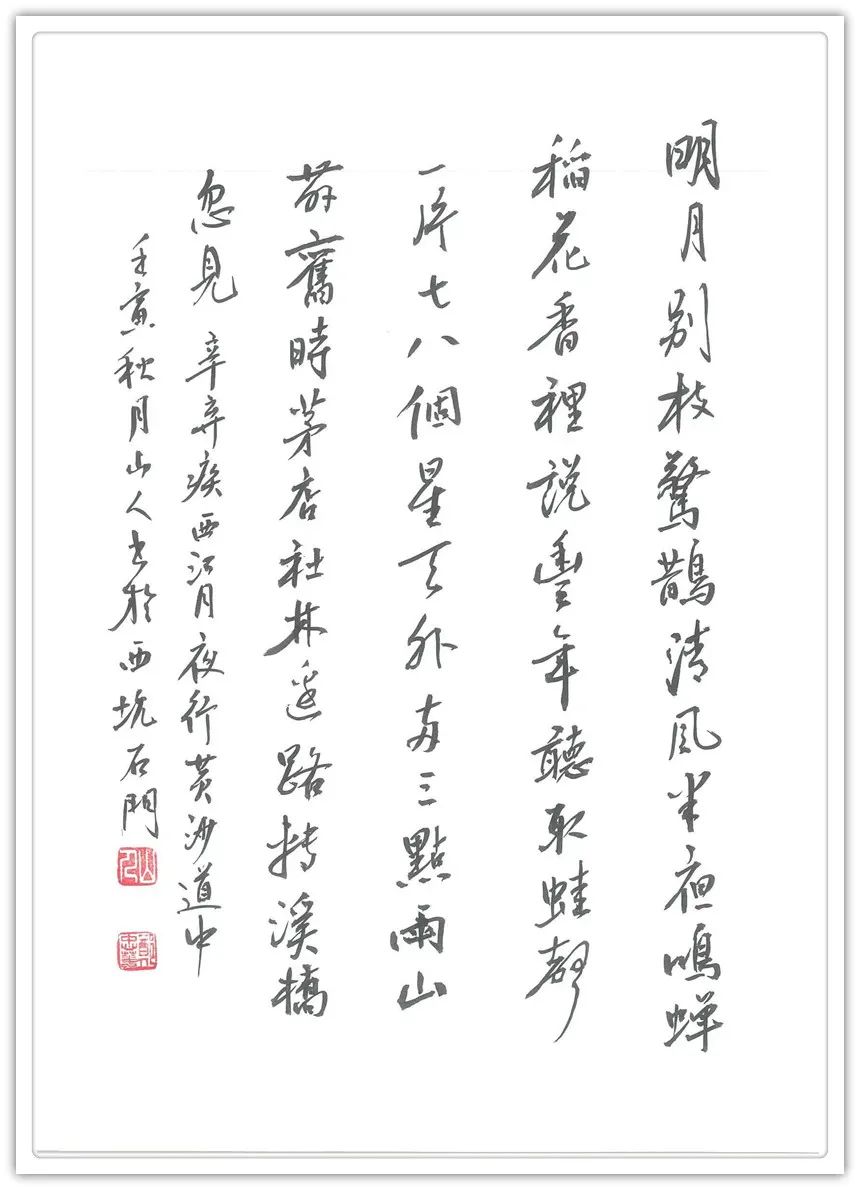 明月别枝驚鵲清風半夜鳴蝉
稻花香裡說豐年聽取蛙聲
一片七八個星天外兩三點雨山
前舊時茅店社林邊路轉溪橋
忽見 辛弃疾西江月夜行黄沙道中
壬寅秋月山人书於西坑石門
山人